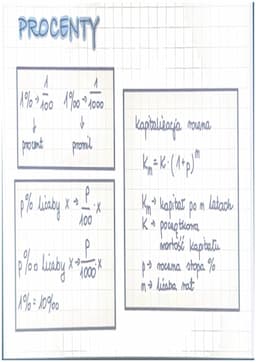 PROCENTY
1% → 1/100  1‰ → 1/1000
↓ ↓
procent promil
p% liczby x → p/100 · x
p‰ liczby x → p/1000 · x
1% = 10‰
Kapitalizacja roczna
Km = K · (1+p)^m
Km → kapitał po m latach
K → początkowa
wartość kapitału
p → roczna stopa %
m → liczba rat